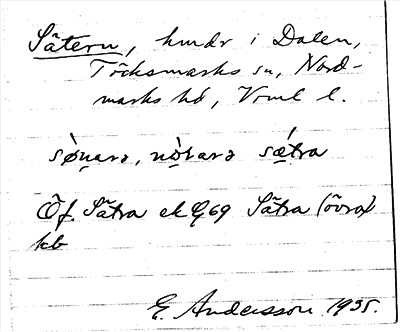 Sätern, hmdr i Dalen,
Töcksmarks sn, Nord-
marks hd, Vrml l.
sø̀narə, nò̱rarə sǽtra
Öf. Sätra ek G69 Sätra (övra)
kb
E. Andersson 1935.